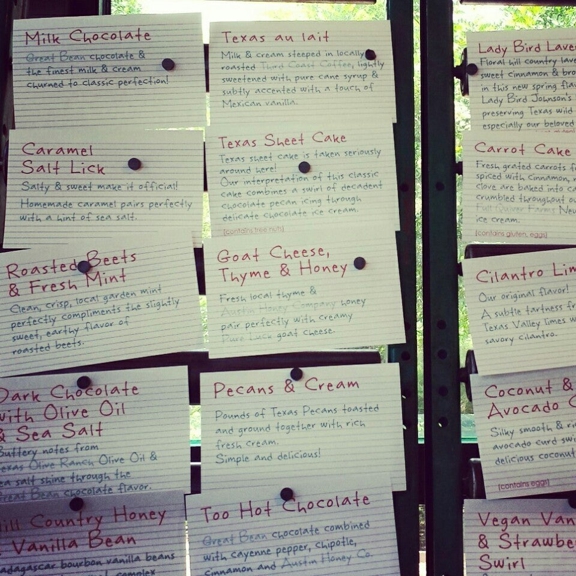 Milk Chocolate
Great Bean chocolate &
the finest milk & cream
churned to classic perfection!
Texas au lait
Milk & cream steeped in locally
roasted Third Coast Coffee, lightly
sweetened with pure cane syrup &
subtly accented with a touch of
Mexican vanilla.
Lady Bird
Floral hill country
sweet cinnamon &
in this new spring
Lady Bird Johnson's
preserving Texas wild
especially our beloved
Caramel
Salt Lick
Salty & sweet make it official!
Homemade caramel pairs perfectly
with a hint of sea salt.
Texas Sheet Cake
Texas sheet cake is taken seriously
around here!
Our interpretation of this classic
cake combines a swirl of decadent
chocolate pecan icing through
delicate chocolate ice cream.
Carrot Cake
Fresh grated carrots
spiced with cinnamon
clove are baked into
crumbled throughout
ice cream.
[contains gluten, eggs]
Roasted Beets
& Fresh Mint
Clean, crisp, local garden mint
perfectly compliments the slightly
sweet, earthy flavor of
roasted beets.
Goat Cheese,
Thyme & Honey
Fresh local thyme &
Austin Honey Company honey
pair perfectly with creamy
Pure Luck goat cheese.
Cilantro
Our original flavor!
A subtle tartness
Texas Valley limes
savory cilantro.
Dark Chocolate
with Olive Oil
& Sea Salt
Buttery notes from
Texas Olive Ranch Olive Oil &
sea salt shine through the
Great Bean chocolate flavor.
Pecans & Cream
Pounds of Texas Pecans toasted
and ground together with rich
fresh cream.
Simple and delicious!
Coconut &
Avocado
Silky smooth &
avocado curd
delicious coconut
[contains eggs]
Hill Country Honey
Vanilla Bean
Madagascar bourbon vanilla beans
complex
Too Hot Chocolate
Great Bean chocolate combined
with cayenne pepper, chipotle,
cinnamon and Austin Honey Co.
Vegan
&
Swirl